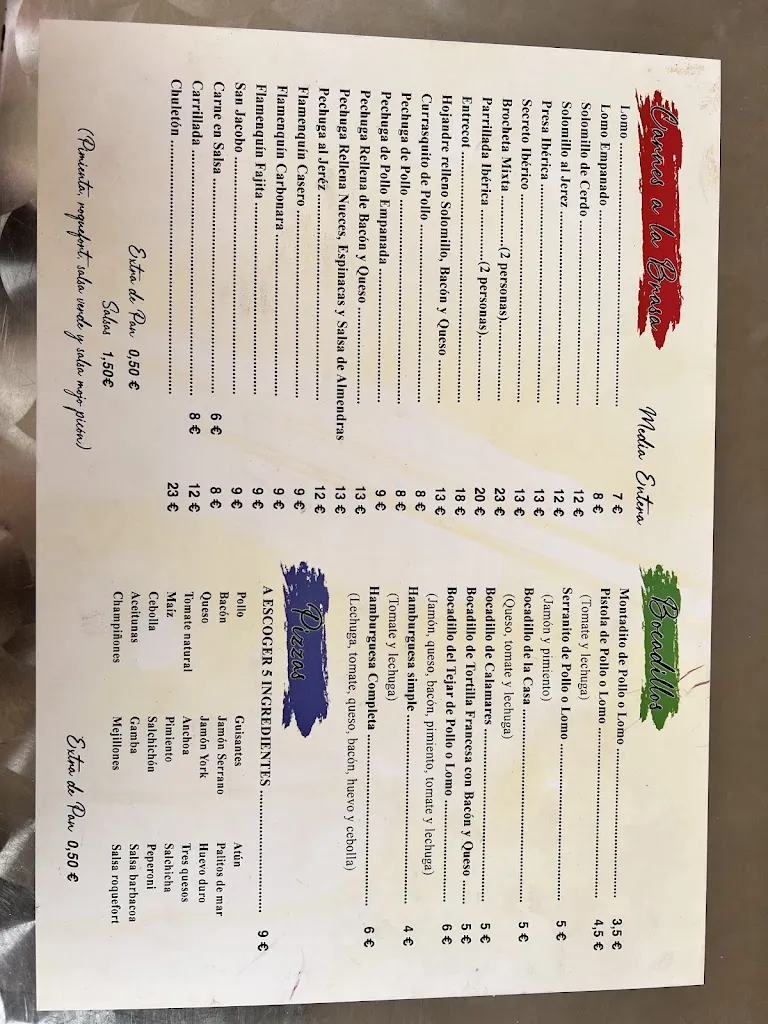 Carnes a la Brasa
Media Entera
Lomo ........ 7 €
Lomo Empanado ........ 8 €
Solomillo de Cerdo ........ 12 €
Solomillo al Jerez ........ 12 €
Presa Ibérica ........ 13 €
Secreto Ibérico ........ 13 €
Brocheta Mixta ........(2 personas)..... 23 €
Parrillada Ibérica ........(2 personas)..... 20 €
Entrecot ........ 18 €
Hojandre relleno Solomillo, Bacón y Queso ........ 13 €
Currasquito de Pollo ........ 8 €
Pechuga de Pollo ........ 8 €
Pechuga de Pollo Empanada ........ 9 €
Pechuga Rellena de Bacón y Queso ........ 13 €
Pechuga Rellena Nueces, Espinacas y Salsa de Almendras 13 €
Pechuga al Jeréz ........ 12 €
Flamenquín Casero ........ 9 €
Flamenquín Carbonara ........ 9 €
Flamenquín Fajita ........ 9 €
San Jacobo ........ 9 €
Carne en Salsa ........ 6 € 8 €
Carrillada ........ 8 € 12 €
Chuletón ........ 23 €
Extra de Pan 0,50 €
Salsas 1,50€
(Pimienta, roquefort, salsa verde y salsa mojo picón)
Bocadillos
Montadito de Pollo o Lomo ........ 3,5 €
Pistola de Pollo o Lomo ........ 4,5 €
(Tomate y lechuga)
Serranito de Pollo o Lomo ........ 5 €
(Jamón y pimiento)
Bocadillo de la Casa ........ 5 €
(Queso, tomate y lechuga)
Bocadillo de Calamares ........ 5 €
Bocadillo de Tortilla Francesa con Bacón y Queso ........ 5 €
Bocadillo del Tejar de Pollo o Lomo ........ 6 €
(Jamón, queso, bacón, pimiento, tomate y lechuga)
Hamburguesa simple ........ 4 €
(Tomate y lechuga)
Hamburguesa Completa ........ 6 €
(Lechuga, tomate, queso, bacón, huevo y cebolla)
Pizzas
A ESCOGER 5 INGREDIENTES ........ 9 €
Pollo Guisantes Atún
Bacón Jamón Serrano Palitos de mar
Queso Jamón York Huevo duro
Tomate natural Anchoa Tres quesos
Maíz Pimiento Salchicha
Cebolla Salchichón Peperoni
Aceitunas Gamba Salsa barbacoa
Champiñones Mejillones Salsa roquefort
Extra de Pan 0,50 €